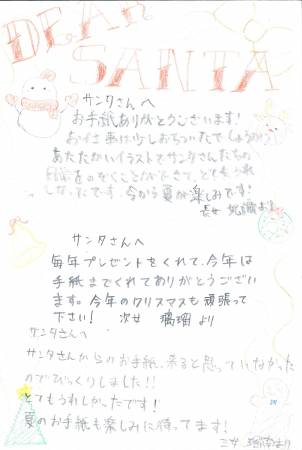 DEAR
SANTA
サンタさんへ
お手紙ありがとうございます!
お仕事は少しおちついたでしょうか?
あたたかいイラストでサンタさんたちの
日常をのぞくことができて、とてもうれ
しかったです。今から夏が楽しみです!
長女 より
サンタさんへ
毎年プレゼントをくれて、今年は
手紙までくれてありがとうござい
ます。今年のクリスマスも頑張って
下さい! 次女 璃瑠 より
サンタさんへ
サンタさんからのお手紙、来ると思っていなかった
のでびっくりしました!!
とてもうれしかったです!
夏のお手紙も楽しみに待ってます!
三女 より